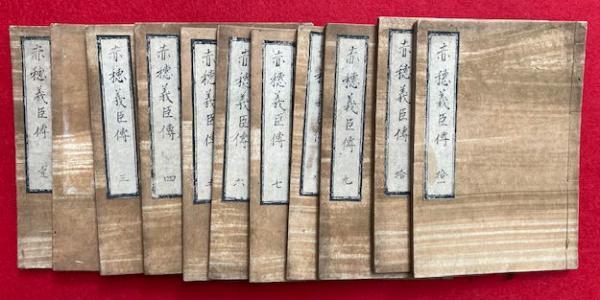 赤穂義臣傳
赤穂義臣傳 三
赤穂義臣傳 四
赤穂義臣傳
赤穂義臣傳 六
赤穂義臣傳 七
赤穂義
赤穂義臣傳 九
赤穂義臣傳 拾
赤穂義臣傳 拾一